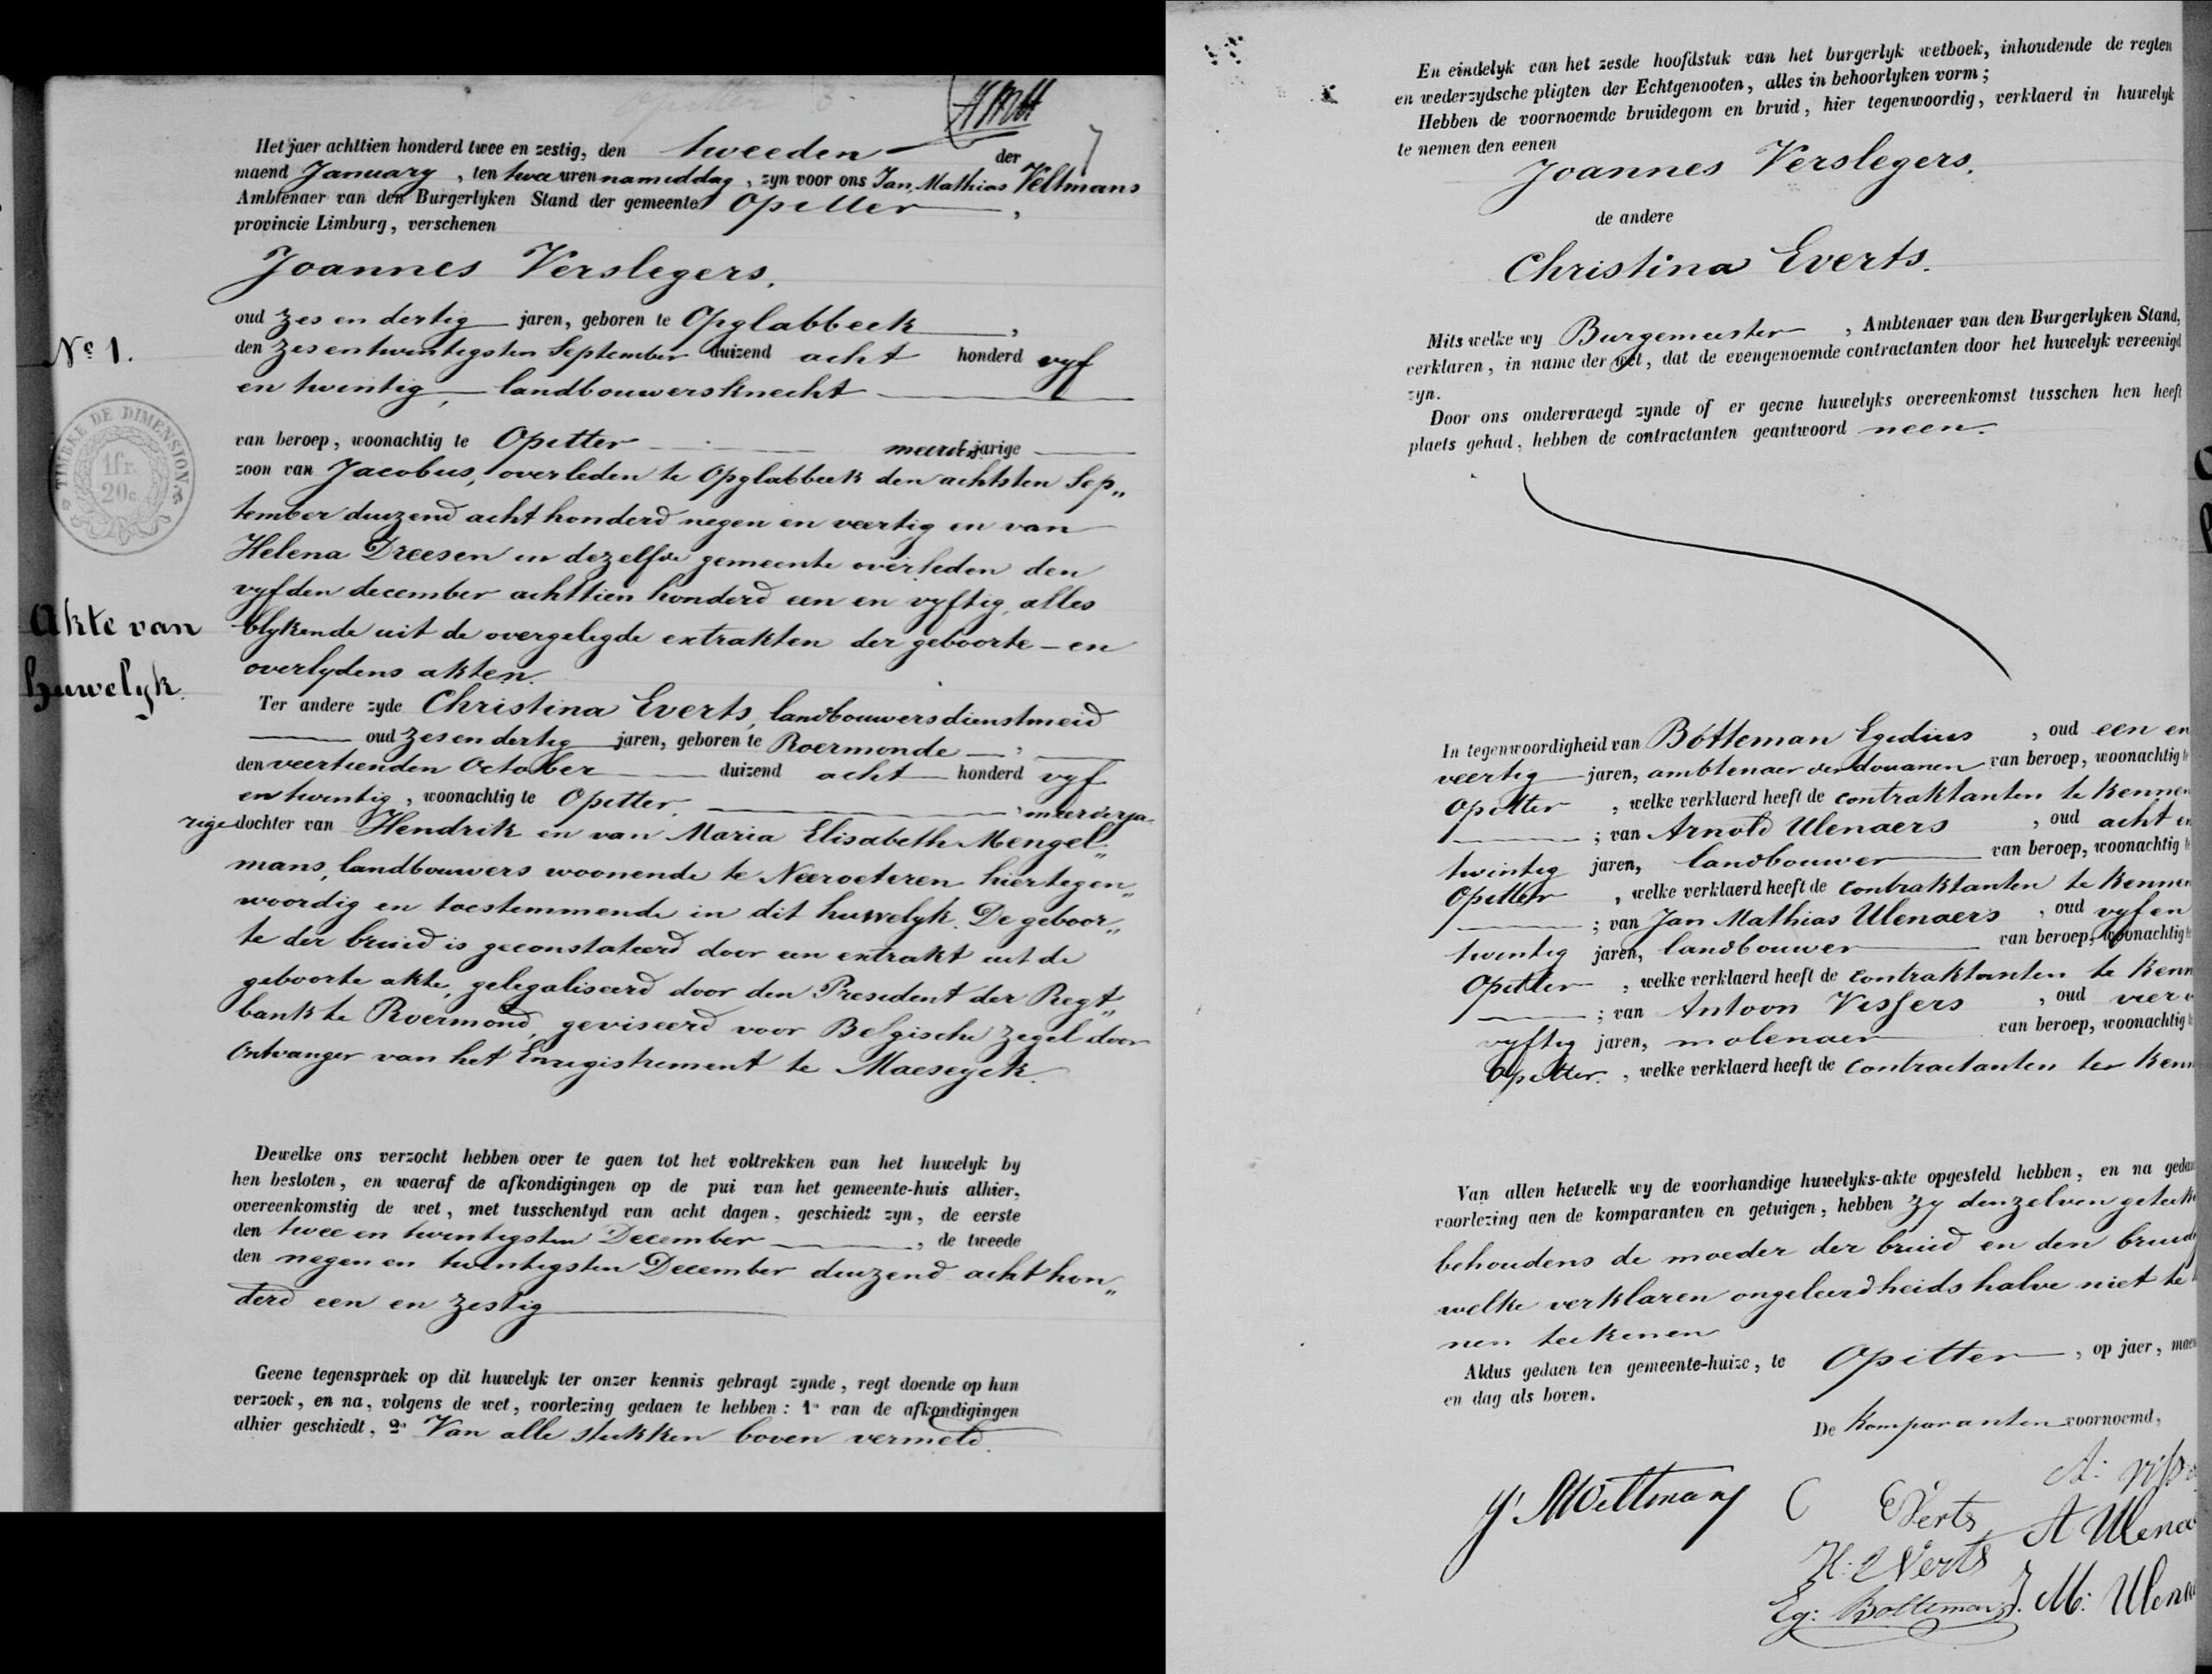 Het jaer achttien honderd twee en zestig, den tweeden der
maend January, ten twee uren namiddag, zyn voor ons Jan Mathias Veltmans
Ambtenaer van den Burgerlyken Stand der gemeente Opitter,
provincie Limburg, verschenen
Joannes Verslegers,
oud zes en dertig jaren, geboren te Opglabbeek,
No 1.
den zesentwintigsten September duizend acht honderd vyf
en twintig, landbouwersknecht
TIMBRE DE DIMENSION
1fr.
20c
van beroep, woonachtig te Opitter meerderjarige
zoon van Jacobus, overleden te Opglabbeek den achtsten Sep„
tember duizend acht honderd negen en veertig en van
Helena Dreesen in dezelfde gemeente overleden den
vyfden december achttien honderd een en vyftig, alles
Akte van
blykende uit de overgelegde extrakten der geboorte - en
overlydens akten.
huwelyk.
Ter andere zyde Christina Everts, landbouwersdienstmeid
oud zesendertig jaren, geboren te Roermonde,
den veertienden October duizend acht honderd vyf
en twintig, woonachtig te Opitter, meerderja-
rige dochter van Hendrik en van Maria Elisabeth Mengel„
mans, landbouwers woonende te Neeroeteren hiertegen„
woordig en toestemmende in dit huwelyk. De geboor„
te der bruid is geconstateerd door een extrakt uit de
geboorte akte, gelegaliseerd door den President der Regt„
bank te Roermond, geviseerd voor Belgische zegel door
Ontvanger van het Enregistrement te Maeseyck.
Dewelke ons verzocht hebben over te gaen tot het voltrekken van het huwelyk by
hen besloten, en waeraf de afkondigingen op de pui van het gemeente-huis alhier,
overeenkomstig de wet, met tusschentyd van acht dagen, geschiedt zyn, de eerste
den twee en twintigsten December, de tweede
den negen en twintigsten December duizend acht hon„
derd een en zestig
Geene tegenspraek op dit huwelyk ter onzer kennis gebragt zynde, regt doende op hun
verzoek, en na, volgens de wet, voorlezing gedaen te hebben: 1o van de afkondigingen
alhier geschiedt, 2o Van alle stukken boven vermeld.
En eindelyk van het zesde hoofdstuk van het burgerlyk wetboek, inhoudende de regten
en wederzydsche pligten der Echtgenooten, alles in behoorlyken vorm;
Hebben de voornoemde bruidegom en bruid, hier tegenwoordig, verklaerd in huwelyk
te nemen den eenen
Joannes Verslegers.
de andere
Christina Everts.
Mits welke wy Burgemeester, Ambtenaer van den Burgerlyken Stand,
verklaren, in name der wet, dat de evengenoemde contractanten door het huwelyk vereenigd
zyn.
Door ons ondervraegd zynde of er geene huwelyks overeenkomst tusschen hen heeft
plaets gehad, hebben de contractanten geantwoord neen.
In tegenwoordigheid van Botteman Egidius, oud een en
veertig jaren, ambtenaer der douanen van beroep, woonachtig te
Opitter, welke verklaerd heeft de contraktanten te kennen
; van Arnold Ulenaers, oud acht en
twintig jaren, landbouwer van beroep, woonachtig te
Opitter, welke verklaerd heeft de contraktanten te kennen
; van Jan Mathias Ulenaers, oud vyf en
twintig jaren, landbouwer van beroep, woonachtig te
Opitter, welke verklaerd heeft de contraktanten te kenn
; van Antoon Vissers, oud vier
vyftig jaren, molenaer van beroep, woonachtig te
Opitter., welke verklaerd heeft de contractanten te kenn
Van allen hetwelk wy de voorhandige huwelyks-akte opgesteld hebben, en na gedaa
voorlezing aen de komparanten en getuigen, hebben zy denzelven geteek
behoudens de moeder der bruid en den bruide
welke verklaren ongeleerdheidshalve niet te
nen teekenen
Aldus gedaen ten gemeente-huize, te Opitter, op jaer, maen
en dag als boven.
De komparanten voornoemd,
J. M Veltmans C Everts
A: Viss
A Ulenae
H: Everts
Eg: Botteman J. M: Ulena